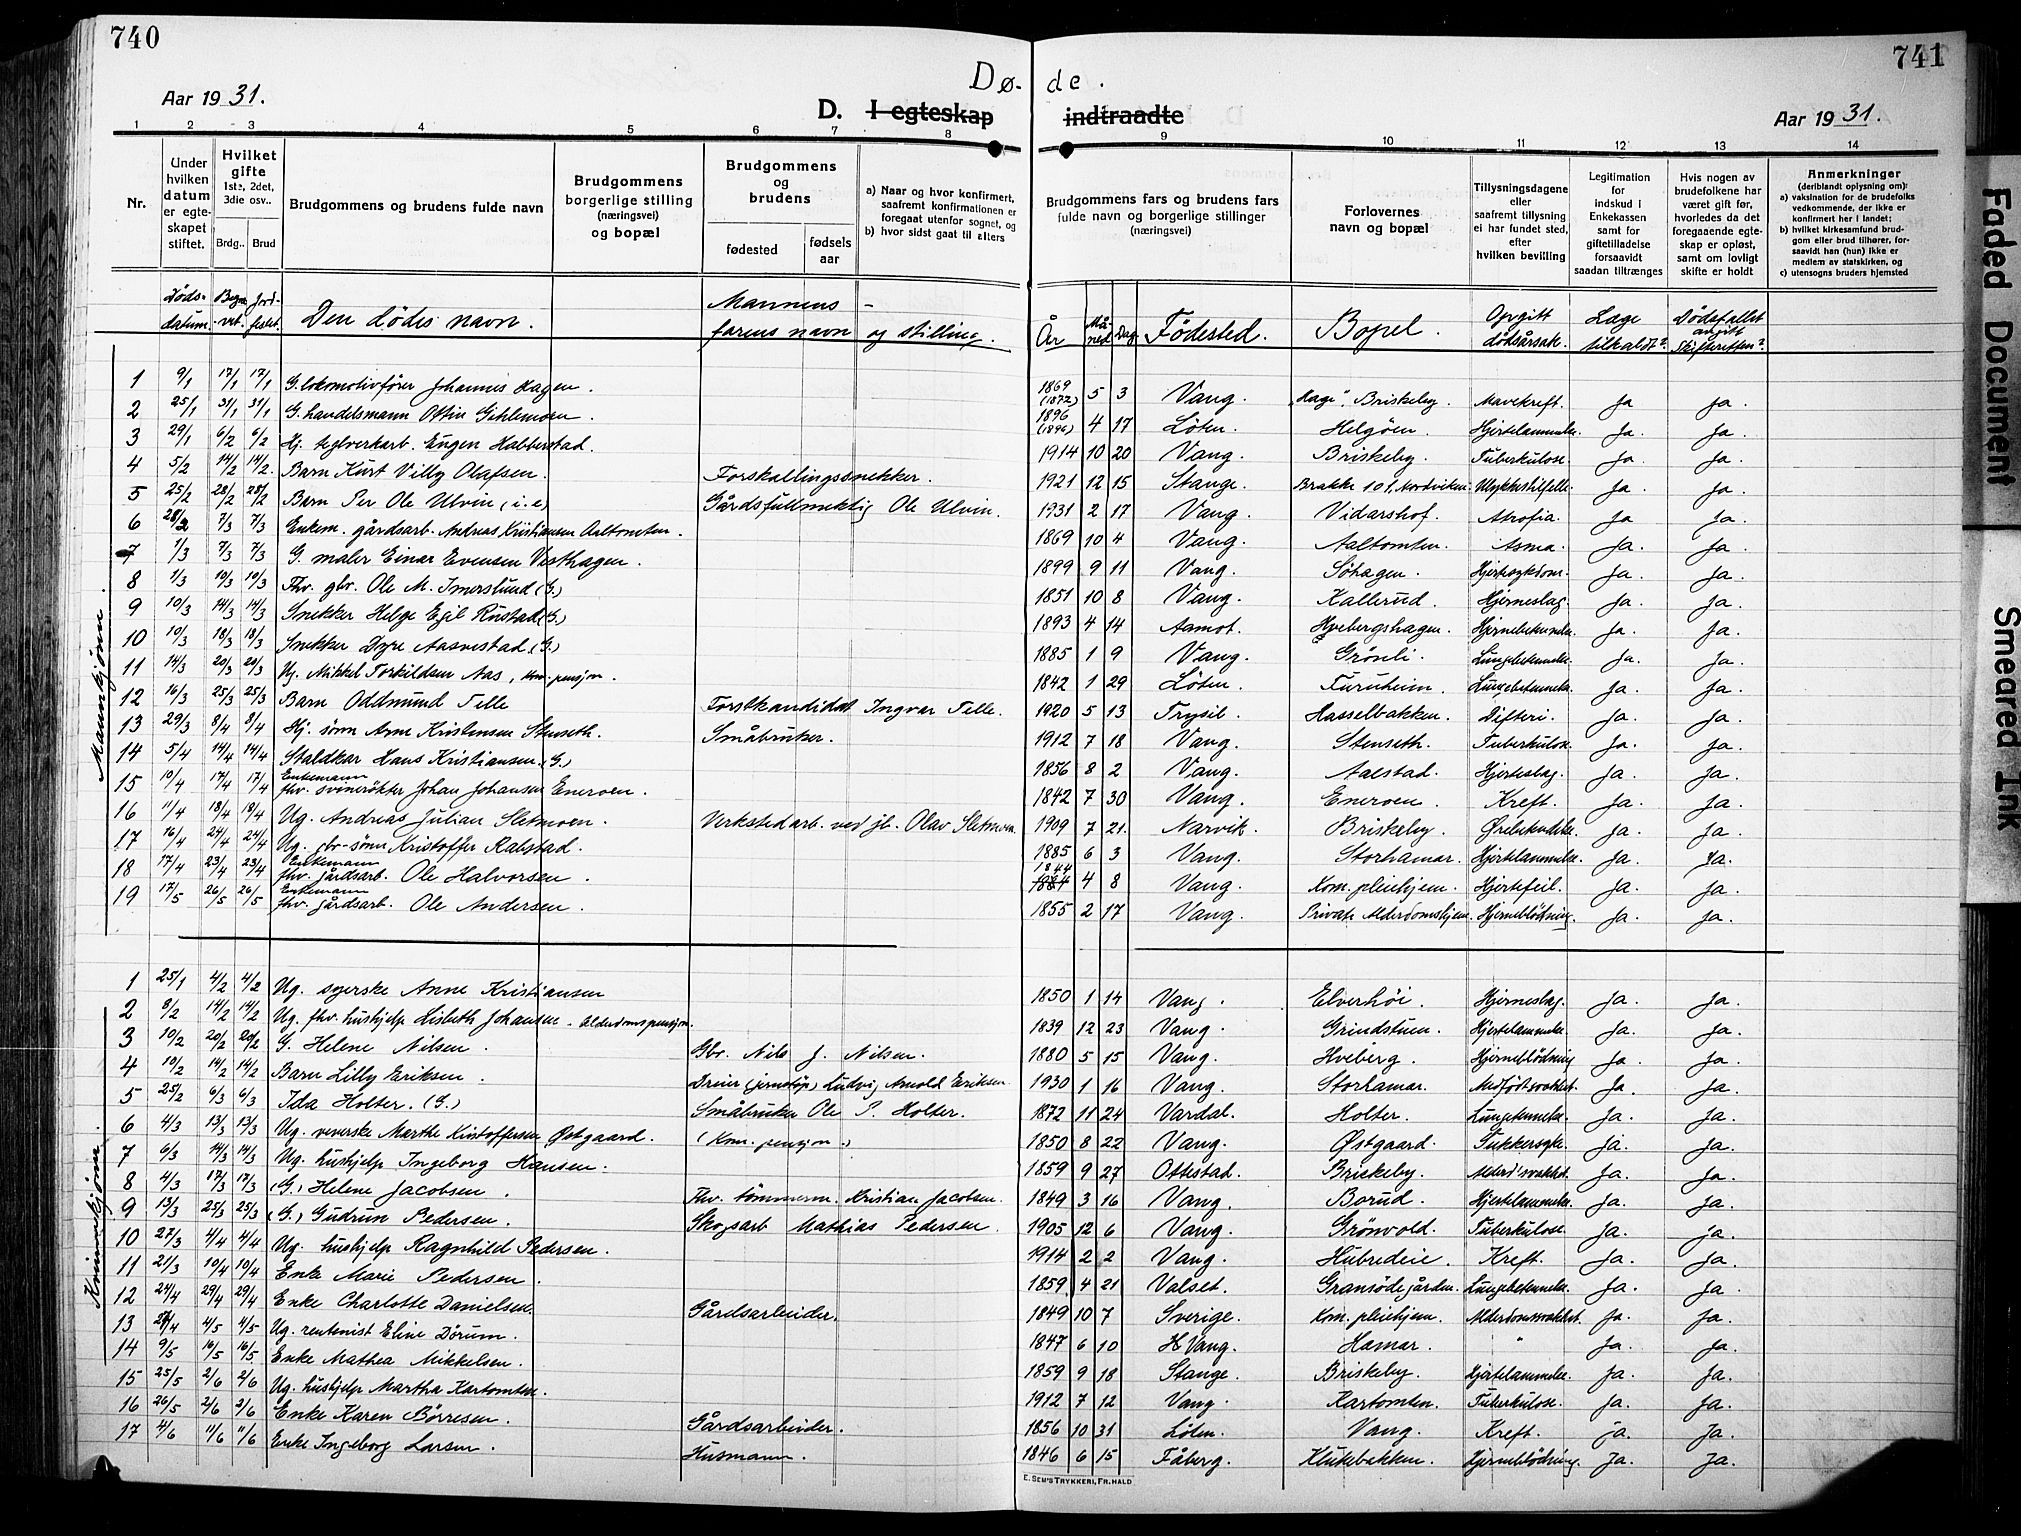 740
741
Dø- de.
Aar 1931.
D. I egteskap indtraadte
Aar 1931.
1 2 3 4 5 6 7 8 9 10 11 12 13 14
Nr.
Under hvilken datum er egteskapet stiftet.
Hvilket gifte 1ste, 2det, 3die osv..
Brdg.. Brud
Brudgommens og brudens fulde navn
Brudgommens borgerlige stilling (næringsvei) og bopæl
Brudgommens og brudens
fødested
fødsels aar
a) Naar og hvor konfirmert, saafremt konfirmationen er foregaat utenfor sognet, og
b) hvor sidst gaat til alters
Brudgommens fars og brudens fars fulde navn og borgerlige stillinger (næringsvei)
Forlovernes navn og bopæl
Tillysningsdagene eller saafremt tillysning ei har fundet sted, efter hvilken bevilling
Legitimation for indskud i Enkekassen samt for giftetilladelse forsaavidt saadan tiltrænges
Hvis nogen av brudefolkene har været gift før, hvorledes da det foregaaende egteskap er opløst, samt om lovligt skifte er holdt
Anmerkninger (deriblandt oplysning om):
a) vaksination for de brudefolks vedkommende, der ikke er konfirmert her i landet;
b) hvilket kirkesamfund brudgom eller brud tilhører, forsaavidt han (hun) ikke er medlem av statskirken, og
c) utensogns bruders hjemsted
Døds-datum. Begravet. Jordfestet. Den dødes navn. Mannens - farens navn og stilling. År Måned Dag Fødested. Bopel. Opgitt dødsårsak. Læge tilkaldt? Dødsfallet angitt Skifteretten?
Mannkjønn.
1 9/1 17/1 17/1 G. lokomotivfører Johannes Hagen. 1869 (1872) 5 3 Vang. "Hage", Briskeby. Mavekreft. Ja Ja.
2 25/1 31/1 31/1 G. handelsmann Ottin Gihlemoen. 1896 (1896) 4 17 Löten. Helgöen. Hjertelammelse. Ja. Ja.
3 29/1 6/2 6/2 Uj. teglverkarb. Eugen Habberstad. 1914 10 20 Vang. Briskeby. Tuberkulose. Ja. Ja.
4 5/2 14/2 14/2. Barn Kurt Villy Olafsen. Forskallingssnekker. 1921 12 15 Stange. Brakke 101, Nordviken. Ulykkestilfelle. Ja. Ja.
5 25/2 28/2 28/2 Barn Per Ole Ulvin (i.e) Gårdsfullmektig Ole Ulvin. 1931 2 17 Vang. Vidarshof. Atrofia. Ja Ja.
6 28/2 7/3 7/3 Enkem. gårdsarb. Andreas Kristiansen Aaltomten. 1869 10 4 Vang. Aaltomten. Asma. Ja. Ja.
7 1/3 7/3 7/3 G. maler Einar Evensen Vesthagen. 1899 9 11 Vang. Söhagen. Hjertesykdom. Ja. Ja.
8 1/3 10/3 10/3 Fhv. gbr. Ole M. Imerslund (G.) 1851 10 8 Vang. Kallerud. Hjerneslag. Ja. Ja.
9 10/3 14/3 14/3 Snekker Helge Egil Rustad (G.) 1893 4 14 Aamot. Hvebergshagen. Hjernebetendelse. Ja. Ja.
10 10/3 18/3 18/3 Snekker Dyre Aasvestad (G.) 1885 1 9 Vang. Grönli. Lungebetennelse. Ja. Ja.
11 14/3 20/3 20/3 Ug. Mikkel Torkildsen Aas, kom. pensjon. 1842 1 29 Löten. Furuheim. Lungebetennelse. Ja. Ja.
12 16/3 25/3 25/3 Barn Oddmund Telle Forstkandidat Ingvar Telle. 1920 5 13 Trysil. Hasselbakken. Difteri. Ja. Ja.
13 29/3 8/4 8/4 Uj. sønn Arne Kristensen Stenseth. Småbruker. 1912 7 18 Vang. Stenseth. Tuberkulose. Ja. Ja.
14 5/4 14/4 14/4 Staldkar Hans Kristiansen (G.) 1856 8 2 Vang. Aalstad. Hjerteslag. Ja. Ja.
15 10/4 17/4 17/4 Enkemann fhv. svinerökter Johan Johansen Eneroen. 1842 7 30 Vang. Eneroen. Kreft. Ja. Ja.
16 11/4 18/4 18/4 Ug. Andreas Julian Sletmoen. Verkstedarb. ved jb. Olav Sletmoen. 1909 7 21. Narvik. Briskeby. Ørebetendelse. Ja. Ja.
17 16/4 24/4 24/4 Ug. gbr-sønn Kristoffer Rabstad. 1885 6 3 Vang. Storhamar. Hjertelammelse. Ja. Ja.
18 17/4 23/4 23/4 Enkemann fhv. gårdsarb. Ole Halvorsen. 1844 4 8 Vang. Kom. pleiehjem. Hjertefeil. Ja. Ja.
19 17/5 26/5 26/5 Enkemann fhv. gårdsarb. Ole Andersen. 1855 2 17 Vang. Private Alderdomshjem. Hjerneblödning. Ja. Ja.
Kvinnekjønn.
1 25/1 4/2 4/2 Ug. syerske Anne Kristiansen 1850 1 14 Vang. Elverhöi. Hjerneslag. Ja. Ja.
2 8/2 14/2 14/2 Ug. fhv. hushjelp Lisbeth Johansen. Alderdomspensjon. 1839 12 23 Vang. Grindstuen. Hjertelammelse. Ja. Ja.
3 10/2 20/2 20/2 G. Helene Nilsen. Gbr. Nils J. Nilsen. 1880 5 15 Vang. Hveberg. Hjerneblödning Ja. Ja.
4 10/2 14/2 14/2 Barn Lilly Eriksen. Dreier (jernstöp) Ludvig Arnold Eriksen. 1930 1 16 Vang. Storhamar. Medfödt svakhet. Ja. Ja.
5 25/2 6/3 6/3 Ida Holter. (G.) Småbruker Ole P. Holter. 1872 11 24 Vardal. Holter. Lungebetennelse. Ja. Ja.
6 4/3 13/3 13/3 Ug. veverske Marthe Kristoffersen Østgaard. (Kom. pensjon.) 1850 8 22 Vang. Østgaard. Sukkersyke. Ja. Ja.
7 6/3 14/3 14/3 Ug. hushjelp Ingeborg Hansen. 1859 9 27 Ottestad. Briskeby. Alderd.svakhet. Ja. Ja.
8 4/3 17/3 17/3 (G.) Helene Jacobsen. Fhv. tömmerm. Kristian Jacobsen. 1849 3 16 Vang. Borud. Hjertelammelse. Ja. Ja.
9 13/3 25/3 25/3 (G.) Gudrun Pedersen. Skogsarb Mathias Pedersen. 1905 12 6 Vang. Grönvold. Tuberkulose. Ja. Ja.
10 27/3 4/4 4/4 Ug. hushjelp Ragnhild Pedersen. 1914 2 2 Vang. Hubredeie. Kreft. Ja. Ja.
11 21/3 10/4 10/4 Enke Marie Pedersen. 1859. 4 21 Valset. Gransödegården. Lungebetennelse. Ja. Ja.
12 24/4 29/4 29/4 Enke Charlotte Danielsen. Gårdsarbeider. 1849 10 7 Sverige. Kom. pleiehjem. Alderdomssvakhet. Ja. Ja.
13 27/4 4/5 4/5 Ug. rentenist Eline Dörum. 1847 6 10 H Vang. Hamar. " Ja. Ja.
14 9/5 16/5 16/5 Enke Mathea Mikkelsen. 1859 9 18 Stange. Briskeby. Hjertelammelse. Ja. Ja.
15 25/5 2/6 2/6 Ug. hushjelp Martha Kartomten. 1912 7 12 Vang. Kartomten. Tuberkulose. Ja. Ja.
16 26/5 2/6 2/6 Enke Karen Börresen. Gårdsarbeider. 1856 10 31 Löten. Vang. Kreft. Ja. Ja.
17 4/6 11/6 11/6 Enke Ingeborg Larsen. Husmann. 1846 6 15 Fåberg. Klukebakken. Hjerneblödning. Ja. Ja.
E. SEM'S TRYKKERI, FR.HALD
Faded Document
Smeared Ink